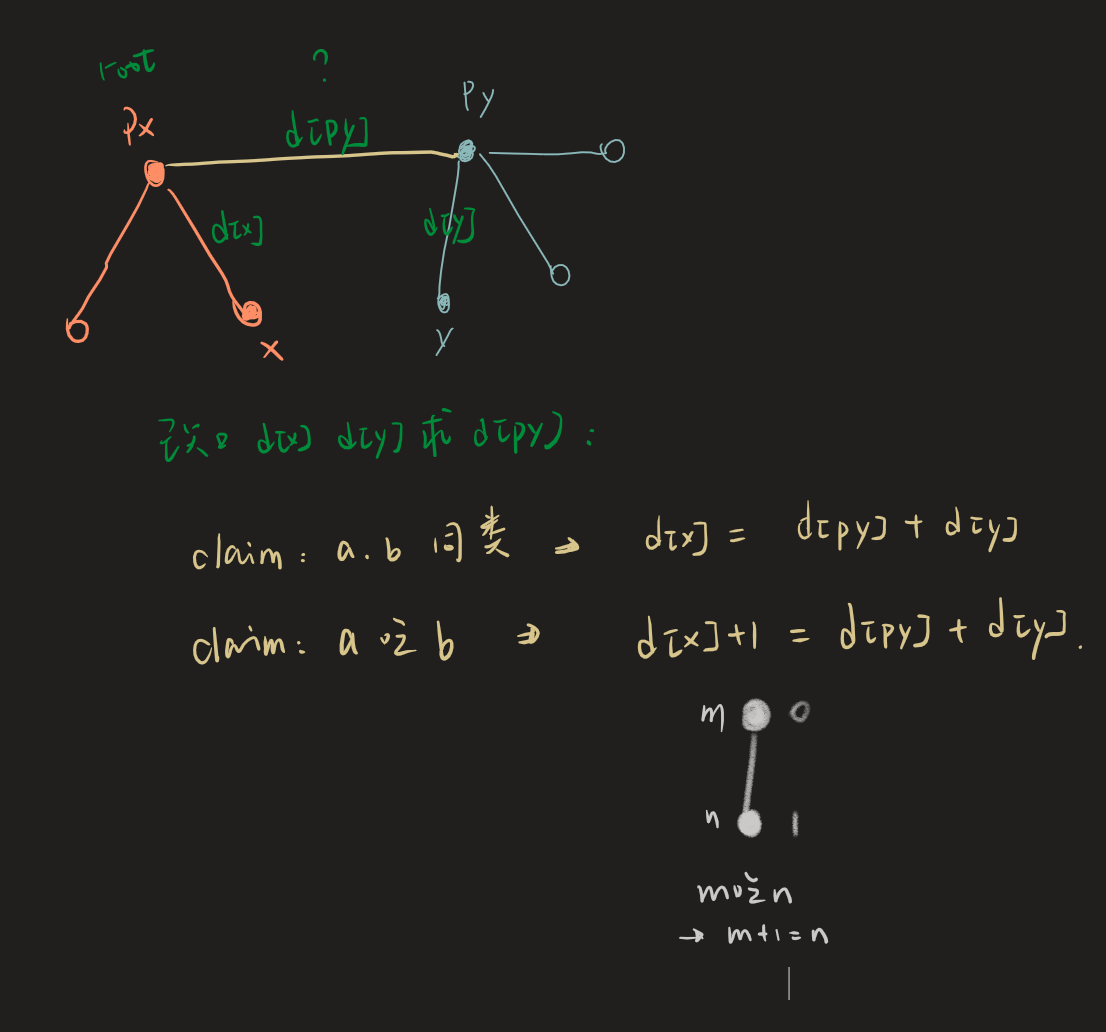 root
?
Px
d[py]
Py
d[x]
d[y]
x
y
d[x] d[y] 求 d[py]:
claim: a.b 同类 → d[x] = d[py] + d[y]
claim: a 吃 b → d[x]+1 = d[py] + d[y].
m 0
n 1
m吃n
→ m+1=n